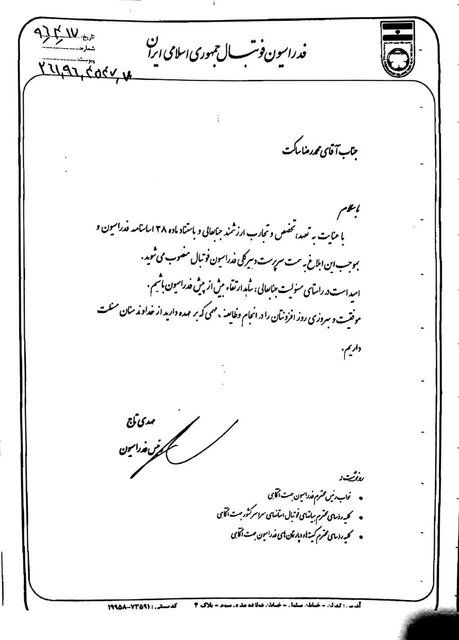 فدراسیون فوتبال جمهوری اسلامی ایران
تاریخ: ۹۶/۴/۱۷
شماره:
پیوست:
جناب آقای محمدرضا ساکت
با سلام
با عنایت به تعهد، تخصص و تجارب ارزشمند جنابعالی و باستناد ماده ۳۸ اساسنامه فدراسیون و
بموجب این ابلاغ به سمت سرپرست دبیرکلی فدراسیون فوتبال منصوب می شوید.
امید است در راستای مسئولیت جنابعالی، شاهد ارتقاء بیش از پیش فدراسیون باشیم.
موفقیت و بهروزی روز افزونتان را در انجام وظایف مهمی که بر عهده دارید از خداوند منان مسئلت
داریم.
مهدی تاج
رئیس فدراسیون
رونوشت:
• نواب رئیس محترم فدراسیون جهت آگاهی
• کلیه روسای محترم هیاتهای فوتبال استانهای سراسر کشور جهت آگاهی
• کلیه روسای محترم کمیته ها و دپارتمان های فدراسیون جهت آگاهی
آدرس: تهران - خیابان - خیابان - پلاک ۴ کدپستی: ۷۳۵۹۱-۱۹۹۵۸